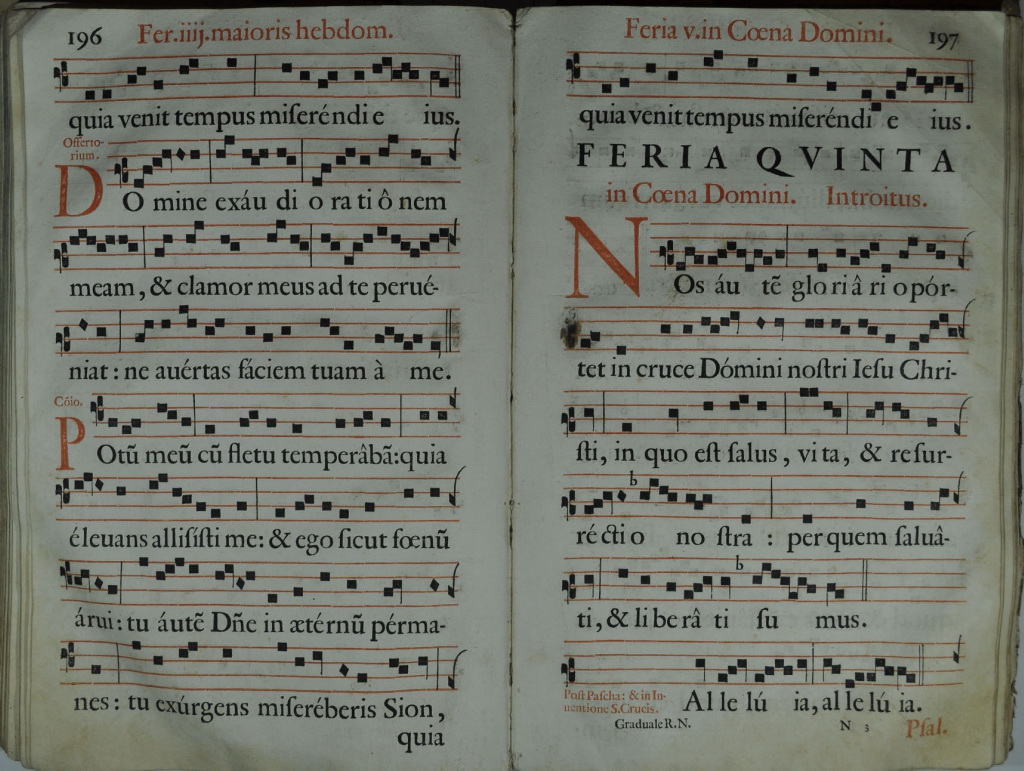 196 Fer.iiij.maioris hebdom.
quia venit tempus miſeréndi e ius.
Offerto-
rium.
DO mine exáu di o ra ti ô nem
meam, & clamor meus ad te perué-
niat : ne auértas fáciem tuam à me.
Cõio.
POtũ meũ cũ fletu temperâbã:quia
éleuans alliſiſti me: & ego ſicut fœnũ
árui: tu áutẽ Dñe in ætérnũ pérma-
nes: tu exúrgens miſeréberis Sion,
quia
Feria v.in Cœna Domini. 197
quia venit tempus miſeréndi e ius.
FERIA QVINTA
in Cœna Domini. Introitus.
NOs áu tẽ glo ri â ri o pór-
tet in cruce Dómini noſtri Ieſu Chri-
b
ſti, in quo eſt ſalus, vi ta, & reſur-
réctio no ſtra : per quem ſaluâ-
b
ti, & li be râ ti ſu mus.
Poſt Paſcha: & in In-
uentione S.Crucis.
Al le lú ia, al le lú ia.
Graduale R.N. N 3 Pſal.